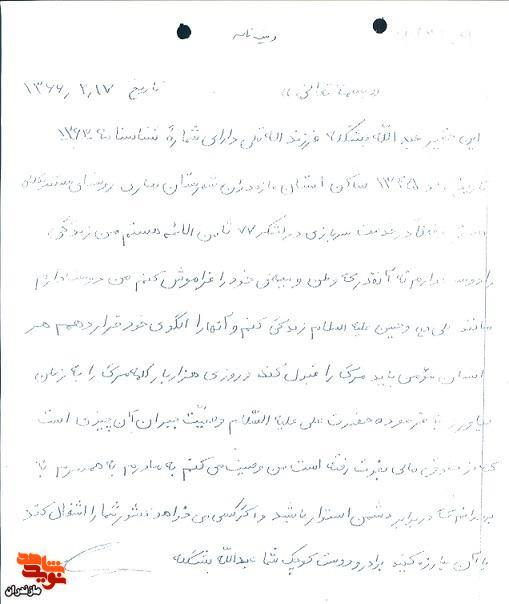 وصیت نامه
«بسمه تعالی» تاریخ ۱۳۶۶٫۲٫۱۷
این حقیر عبدالله بشکله فرزند الله قلی دارای شمارهٔ شناسنامه ۱۳۶۳
تاریخ ۱۳۴۵ ساکن استان مازندران شهرستان ساری روستای
در خدمت سربازی در لشکر ۷۷ ثامن الائمه هستم من زندگی
را دوست دارم نه آنقدر که وطن و میهنی خود را فراموش کنم من دوست دارم
مانند علی و حسین علیه السلام زندگی کنم و آنها را الگوی خود قرار دهم هر
انسان مؤمنی باید مرگ را قبول کند و روزی هزار بار کلمه مرگ را به زبان
بیاورد به فرموده حضرت علی علیه السلام وصیت جبران آن چیزی است
که از مقدرتی رفته است من وصیت می کنم به مادرم به همسرم به
برادرانم که در برابر دشمن استوار باشید و اگر کسی می خواهد کشور شما را اشغال کند
با آن مبارزه کنید برادر و دوست کوچک شما عبدالله بشکله
نوید شاهد
مازندران